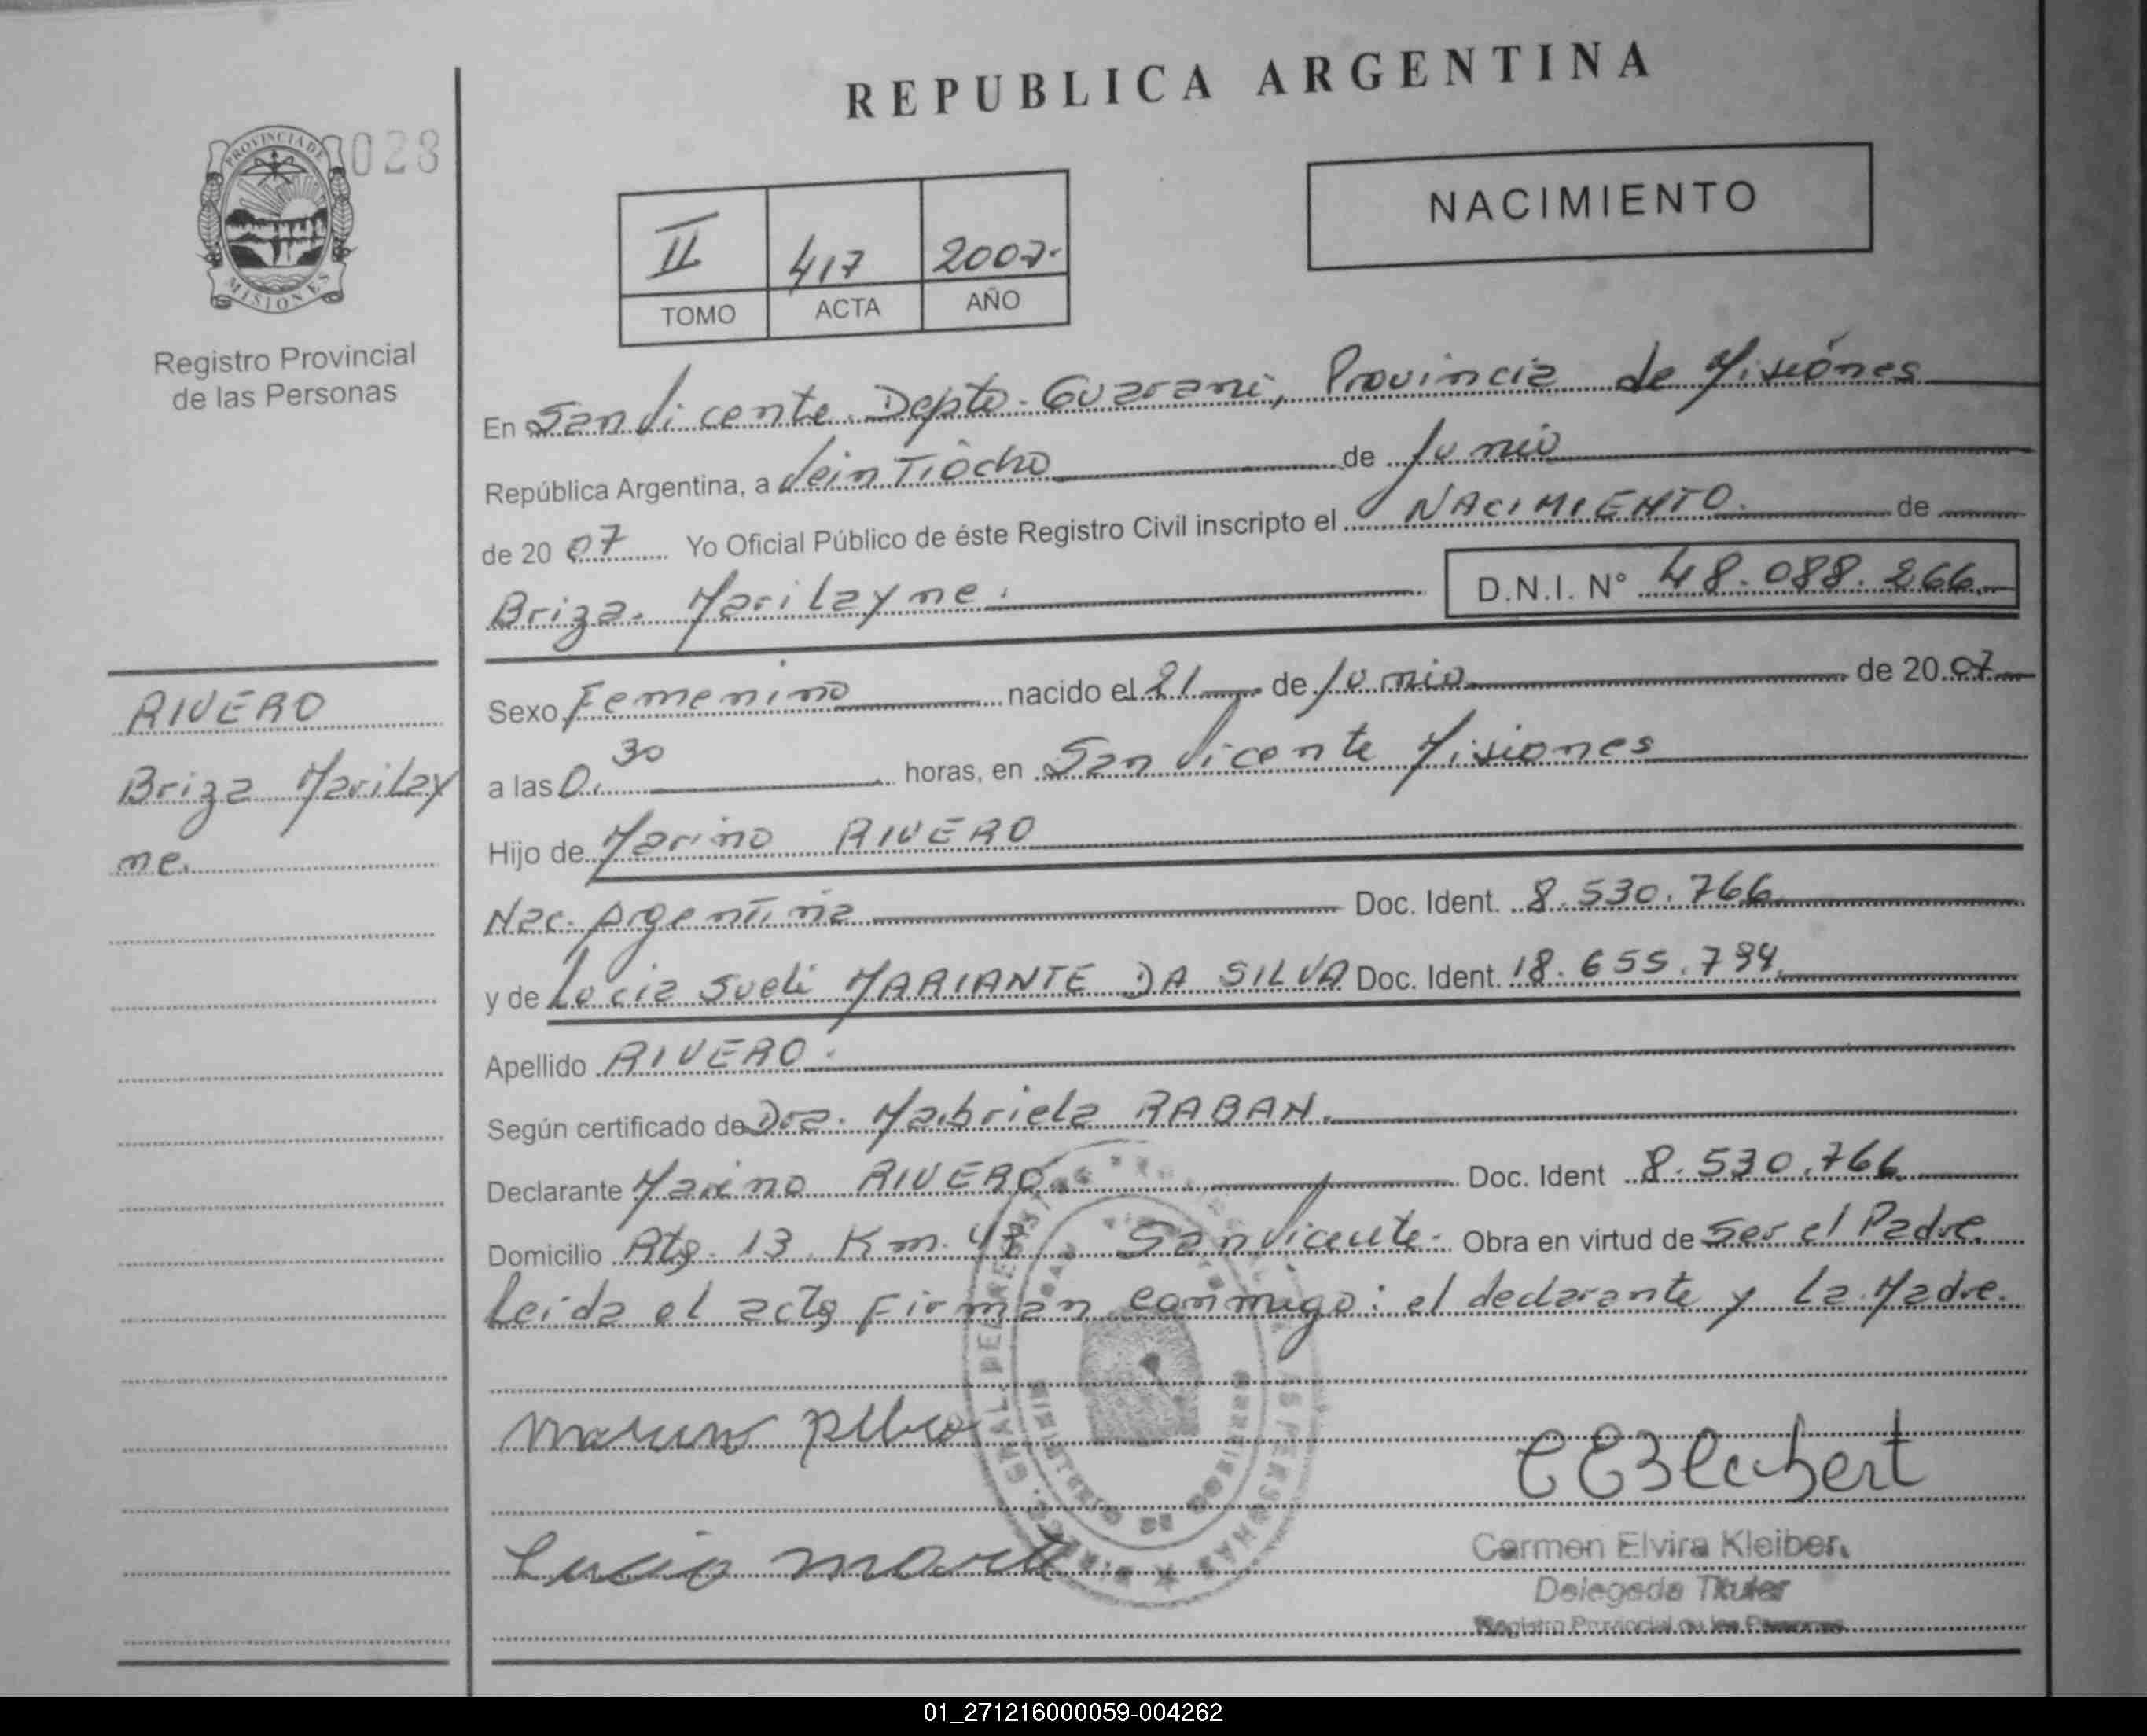 REPUBLICA ARGENTINA
PROVINCIA DE
MISIONES
028
Registro Provincial
de las Personas
NACIMIENTO
II 417 2007.
TOMO ACTA AÑO
En San Vicente Depto. Guarani, Provincia de Misiónes
República Argentina, a Veintiocho de Junio
de 2007 Yo Oficial Público de éste Registro Civil inscripto el NACIMIENTO. de
Briza Marilayne. D.N.I. N° 48.088.266
RIVERO
Briza Marilay
ne.
Sexo Femenino nacido el 21 de Junio de 2007
a las 0,30 horas, en San Vicente Misiones
Hijo de Marino RIVERO
Nac. Argentina Doc. Ident. 8.530.766
y de Lucia Sueli MARIANTE DA SILVA Doc. Ident. 18.655.794
Apellido RIVERO.
Según certificado de Dra. RABAN.
Declarante Marino RIVERO Doc. Ident 8.530.766
Domicilio Rta. 13 Km. San Vicente. Obra en virtud de Ser el Padre.
Leida el acta Firman conmigo: el declarante y la Madre.
Lucia
Carmen Elvira Kleiber
Delegada Titular
Registro Provincial de las Personas
01_271216000059-004262